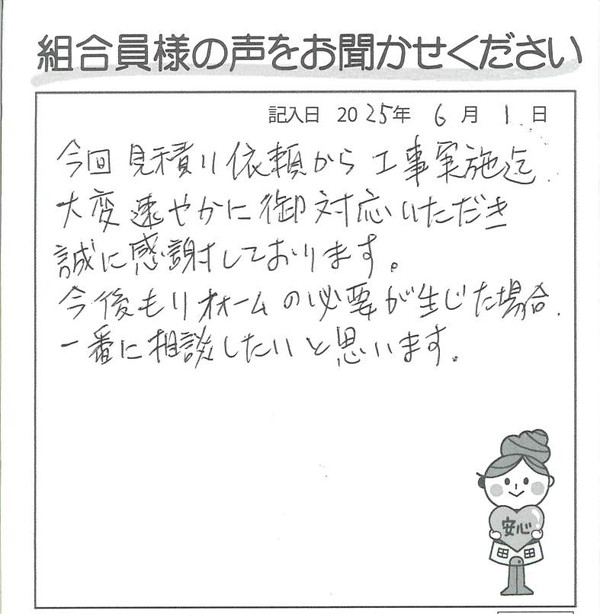 組合員様の声をお聞かせください
記入日 2025年 6月 1日
今回見積り依頼から工事実施迄
大変速やかに御対応いただき
誠に感謝しております。
今後もリォームの必要が生じた場合、
一番に相談したいと思います。
安心